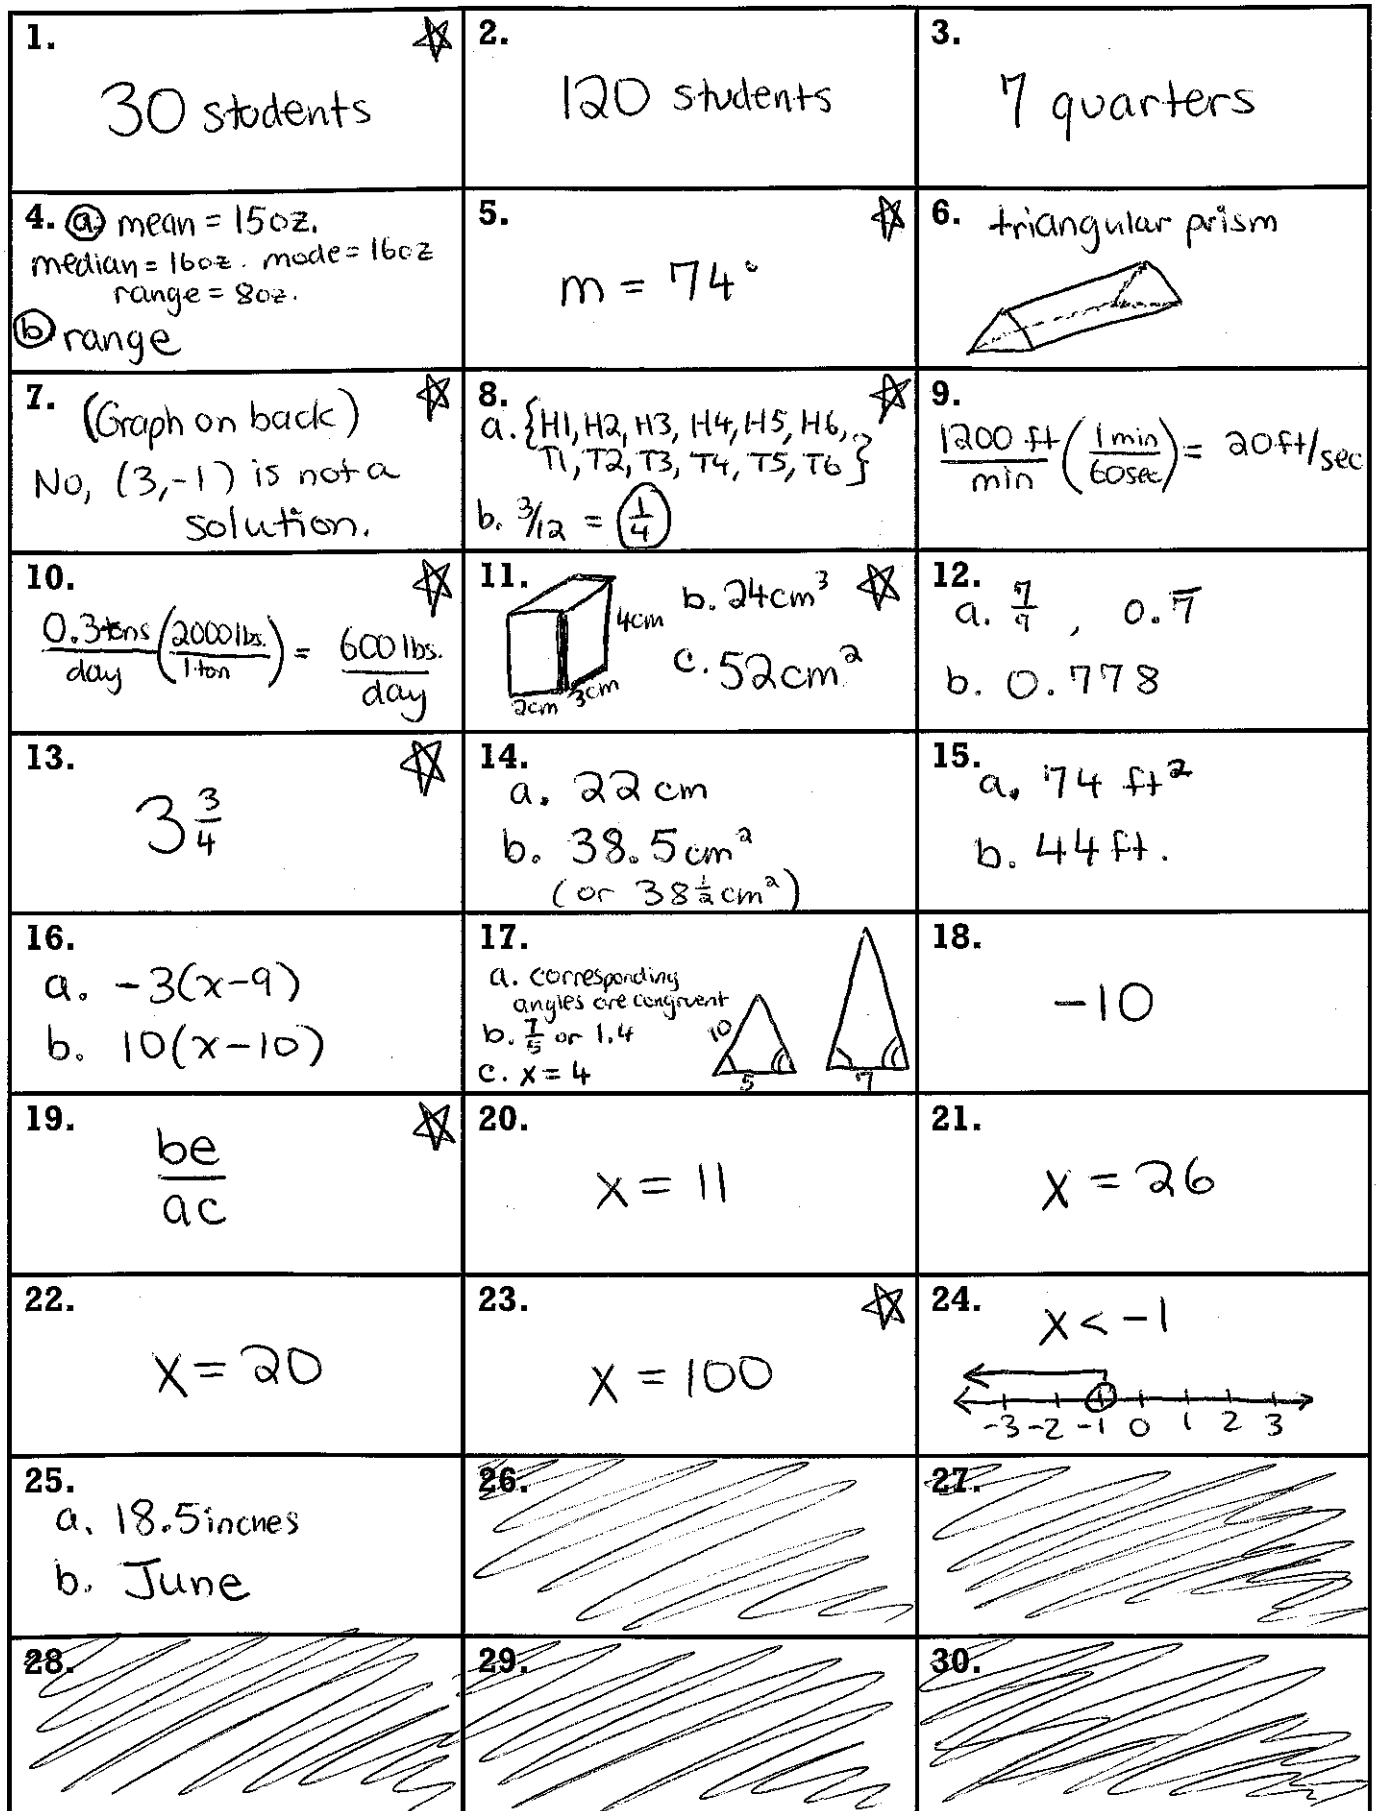 1.
30 students
2.
120 students
3.
7 quarters
4. a. mean = 15oz.
median = 16oz. mode = 16oz
range = 8oz.
b range
5.
m = 74°
6. triangular prism
7. (Graph on back)
No, (3,-1) is not a
solution.
8.
a. {H1, H2, H3, H4, H5, H6,
T1, T2, T3, T4, T5, T6}
b. 3/12 = 1/4
9.
1200 ft/min (1 min/60sec) = 20ft/sec
10.
0.3 tons/day (2000 lbs./1 ton) = 600 lbs./day
11.
4cm
2cm
3cm
b. 24cm³
c. 52cm²
12.
a. 7/9, 0.7̅
b. 0.778
13.
3 3/4
14.
a. 22 cm
b. 38.5 cm²
(or 38 1/2 cm²)
15.
a. 74 ft²
b. 44 ft.
16.
a. -3(x-9)
b. 10(x-10)
17.
a. corresponding
angles are congruent
b. 7/5 or 1.4
c. x = 4
10
5
7
18.
-10
19.
be/ac
20.
x = 11
21.
x = 26
22.
x = 20
23.
x = 100
24.
x < -1
-3 -2 -1 0 1 2 3
25.
a. 18.5 inches
b. June
26.
27.
28.
29.
30.